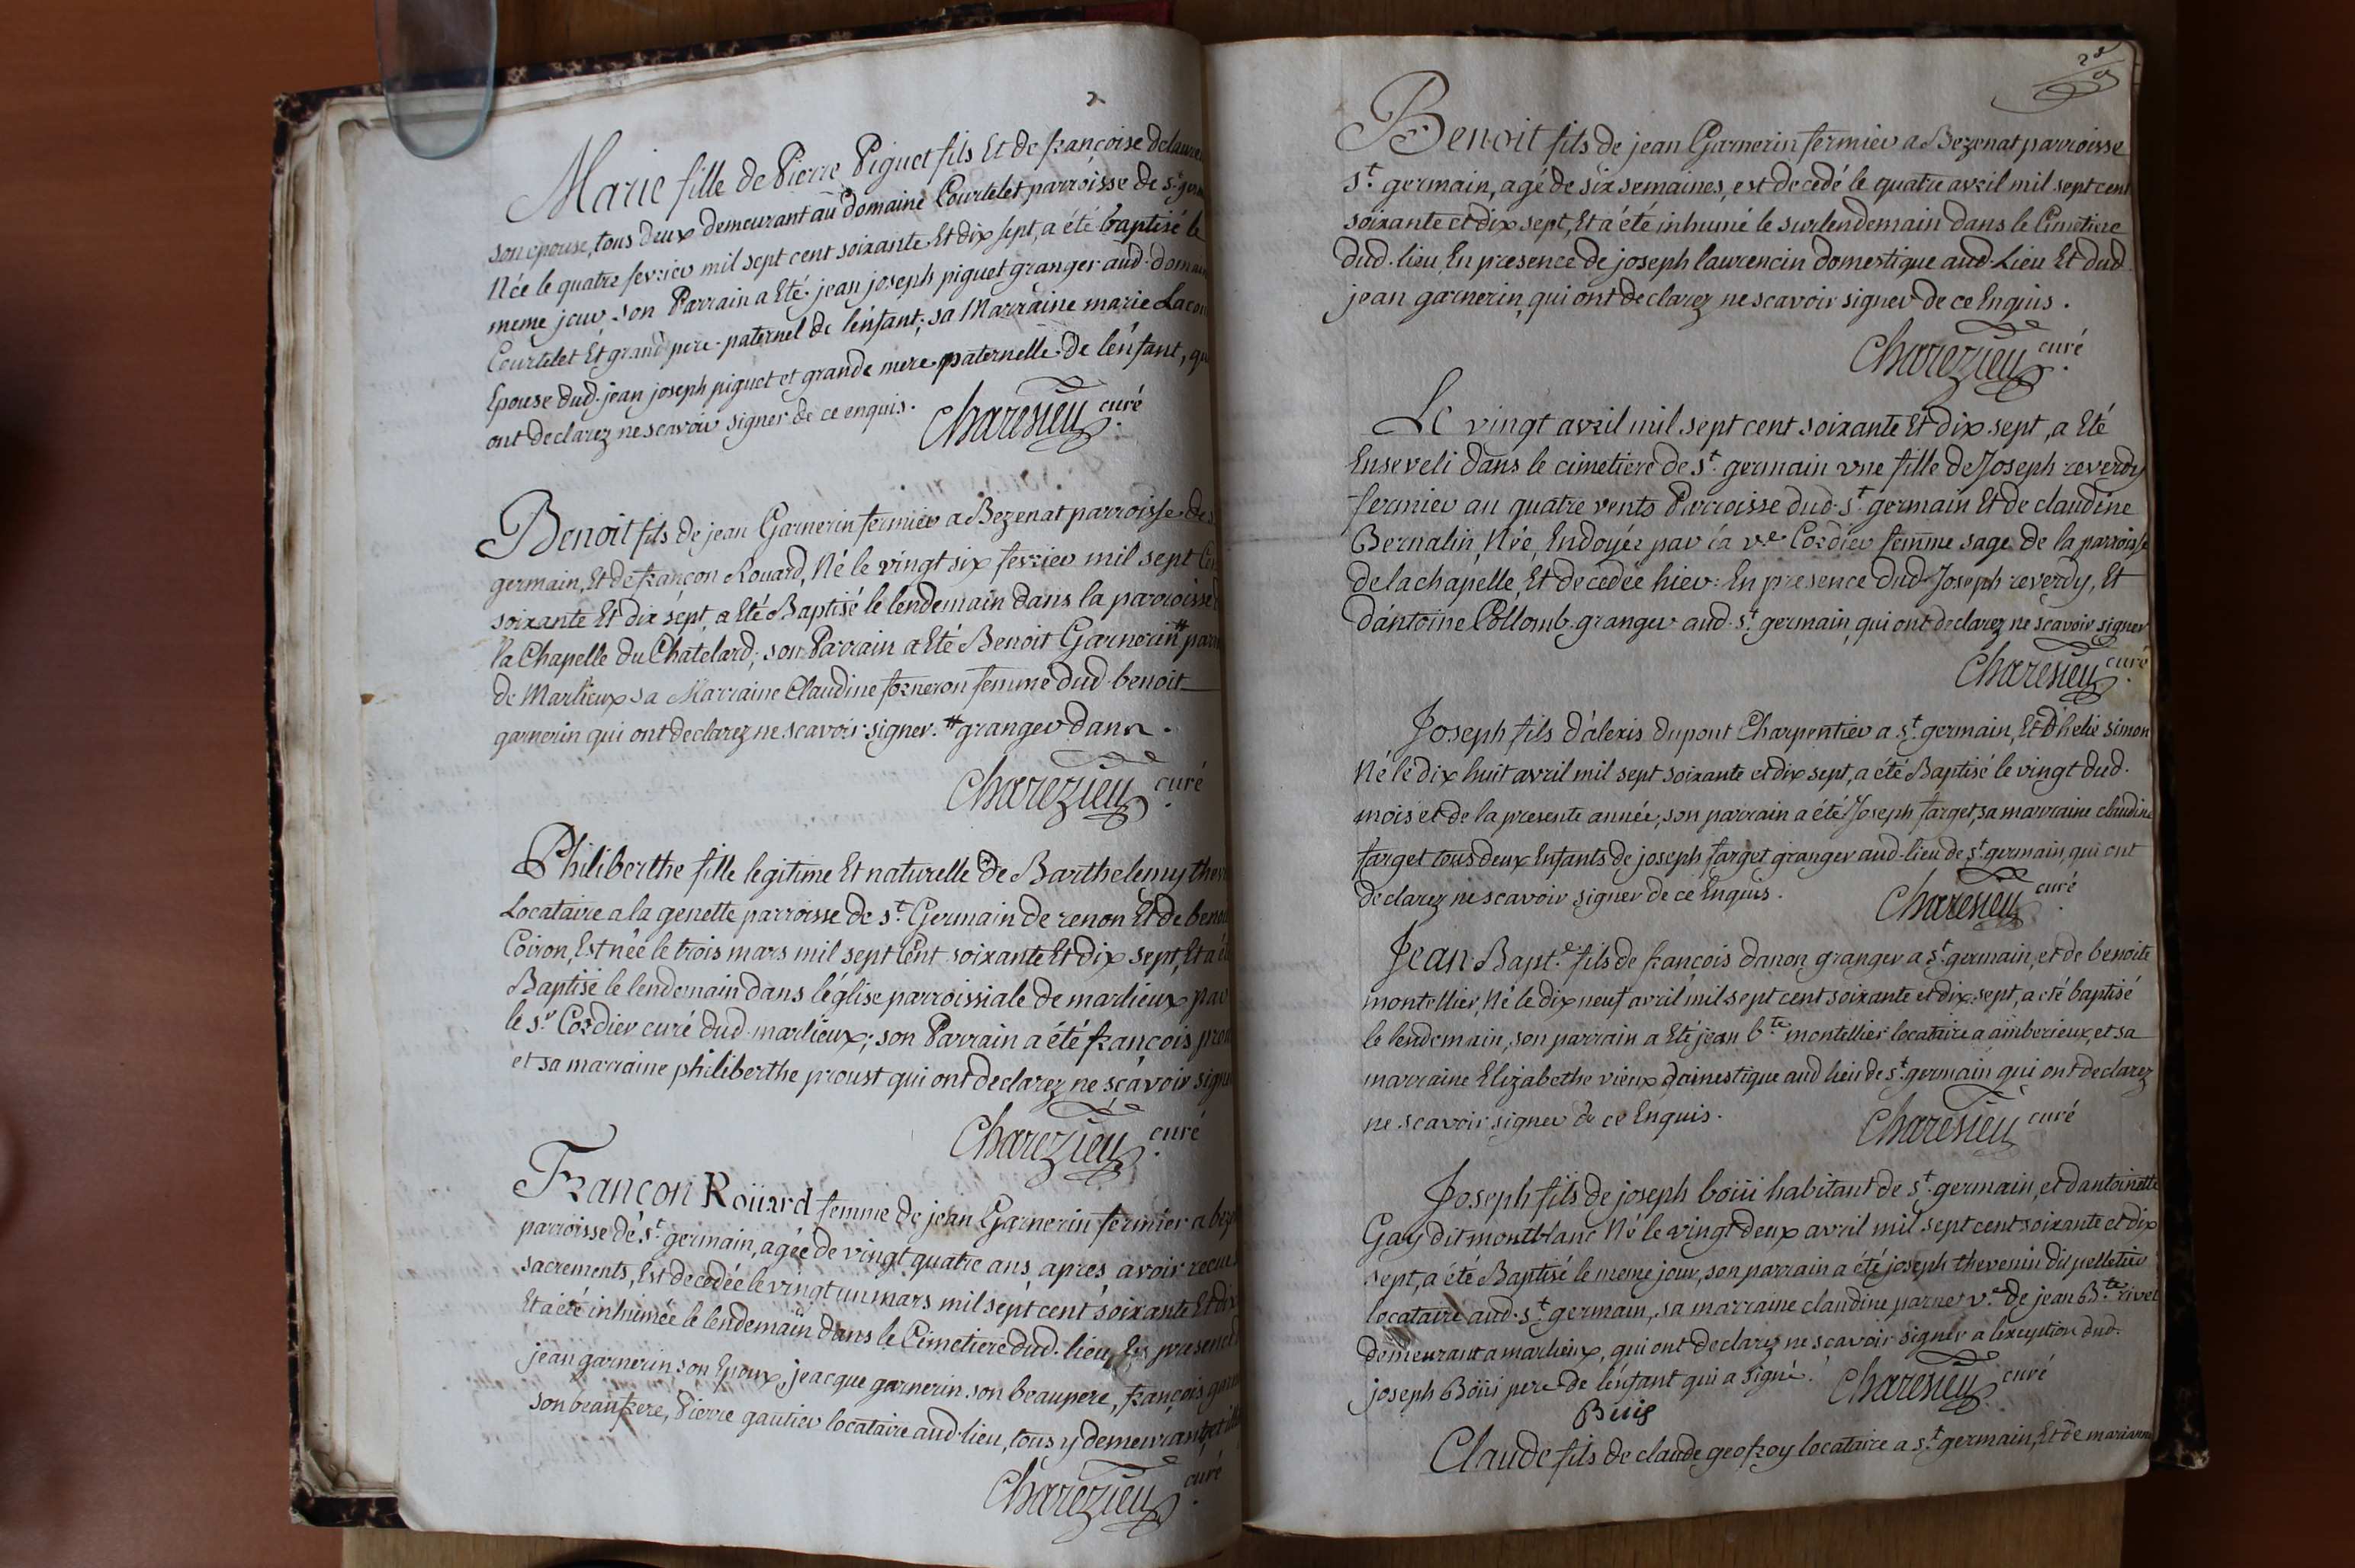 2
Marie fille de Pierre Piguet fils Et de françoise
son epouse, tous deux demeurant au Domaine Courtelet parroisse de st
Née le quatre fevrier mil sept cent soixante Et dix sept, a été baptisé le
meme jour, son Parrain a Eté jean joseph piguet granger aud.
Courtelet Et grand pere paternel de l'enfant; sa Marraine marie
Epouse dud. jean joseph piguet et grande mere paternelle de l'enfant,
ont declarez ne scavoir signer de ce enquis.
Charesieu curé
Benoit fils de jean Garnerin fermier a Bezenat parroisse de
germain, Et de françon Rouard, Né le vingt six fevrier mil sept
soixante Et dix sept, a Eté Baptisé le lendemain dans la parroisse
la Chapelle du Chatelard; son Parrain a Eté Benoit Garnerin #
de Marlieux sa Marraine Claudine forneron femme dud. benoit
garnerin qui ont declarez ne scavoir signer. # granger dans.
Charezieu curé
Philiberthe fille legitime Et naturelle de Barthelemy
Locataire a la genette parroisse de st. Germain de renon Et de
Coiron, Est née le trois mars mil sept Cent soixante Et dix sept, Et a
Baptisé le lendemain dans l'église parroissiale de marlieux par
le sr. Cordier curé dud. marlieux; son Parrain a été françois
et sa marraine philiberthe proust qui ont declarez ne sçavoir
Charezieu curé
Françon Roüard femme de jean Garnerin fermier a
parroisse de st. germain, agée de vingt quatre ans, apres avoir
sacrements, Est decedée le vingt un mars mil sept cent soixante Et
Et a été inhumée le lendemain dans le Cimetiere dud. lieu, En
jean garnerin son Epoux, jeacque garnerin son beaupere, françois
son beaufrere, Pierre gautier locataire aud. lieu, tous y demeurants
Charezieu curé
Benoit fils de jean Garnerin fermier a Bezenat parroisse
st. germain, agé de six semaines, est decedé le quatre avril mil sept cent
soixante et dix sept, Et a été inhumé le surlendemain dans le Cimetiere
dud. lieu, En presence de joseph laurencin domestique aud. Lieu Et dud.
jean garnerin, qui ont declarez ne scavoir signer de ce Enquis.
Charezieu curé
Le vingt avril mil sept cent soixante Et dix sept, a Eté
Enseveli dans le cimetiere de st. germain une fille de Joseph reverdy
fermier au quatre vents Parroisse dud. st. germain Et de claudine
Bernalin, Née, Endoyée par la ve. Cordier femme sage de la parroisse
de la chapelle, Et decedée hier: En presence dud. Joseph reverdy, Et
d'antoine Collomb granger aud. st. germain, qui ont declarez ne scavoir signer
Charesieu curé
Joseph fils d'alexis dupont Charpentier a st. germain, Et d'helie simon
Né le dix huit avril mil sept soixante et dix sept, a été Baptisé le vingt dud.
mois et de la presente année, son parrain a été Joseph farget, sa marraine claudine
farget tous deux Enfants de joseph farget granger aud. lieu de st. germain, qui ont
declarez ne scavoir signer de ce Enquis.
Charesieu curé
Jean Bapte. fils de francois danon granger a st. germain, et de benoite
montellier, Né le dix neuf avril mil sept cent soixante et dix sept, a eté baptisé
le lendemain, son parrain a Eté jean bte. montellier locataire a amberieux, et sa
marraine Elizabethe vieux domestique aud lieu de st. germain qui ont declarez
ne scavoir signer de ce Enquis.
Charesieu curé
Joseph fils de joseph boüi habitant de st. germain, et d'antoinette
Gay dit montblanc Né le vingt deux avril mil sept cent soixante et dix
sept, a été Baptisé le meme jour, son parrain a été joseph thevenin dit pelletier
locataire aud. st. germain, sa marraine claudine parnet ve. de jean Bte. rivet
demeurant a marlieux, qui ont declarez ne scavoir signer a l'exception dud.
joseph Boüi pere de l'enfant qui a signé.
Charesieu curé
Claude fils de claude geofroy locataire a st. germain, Et de marianne